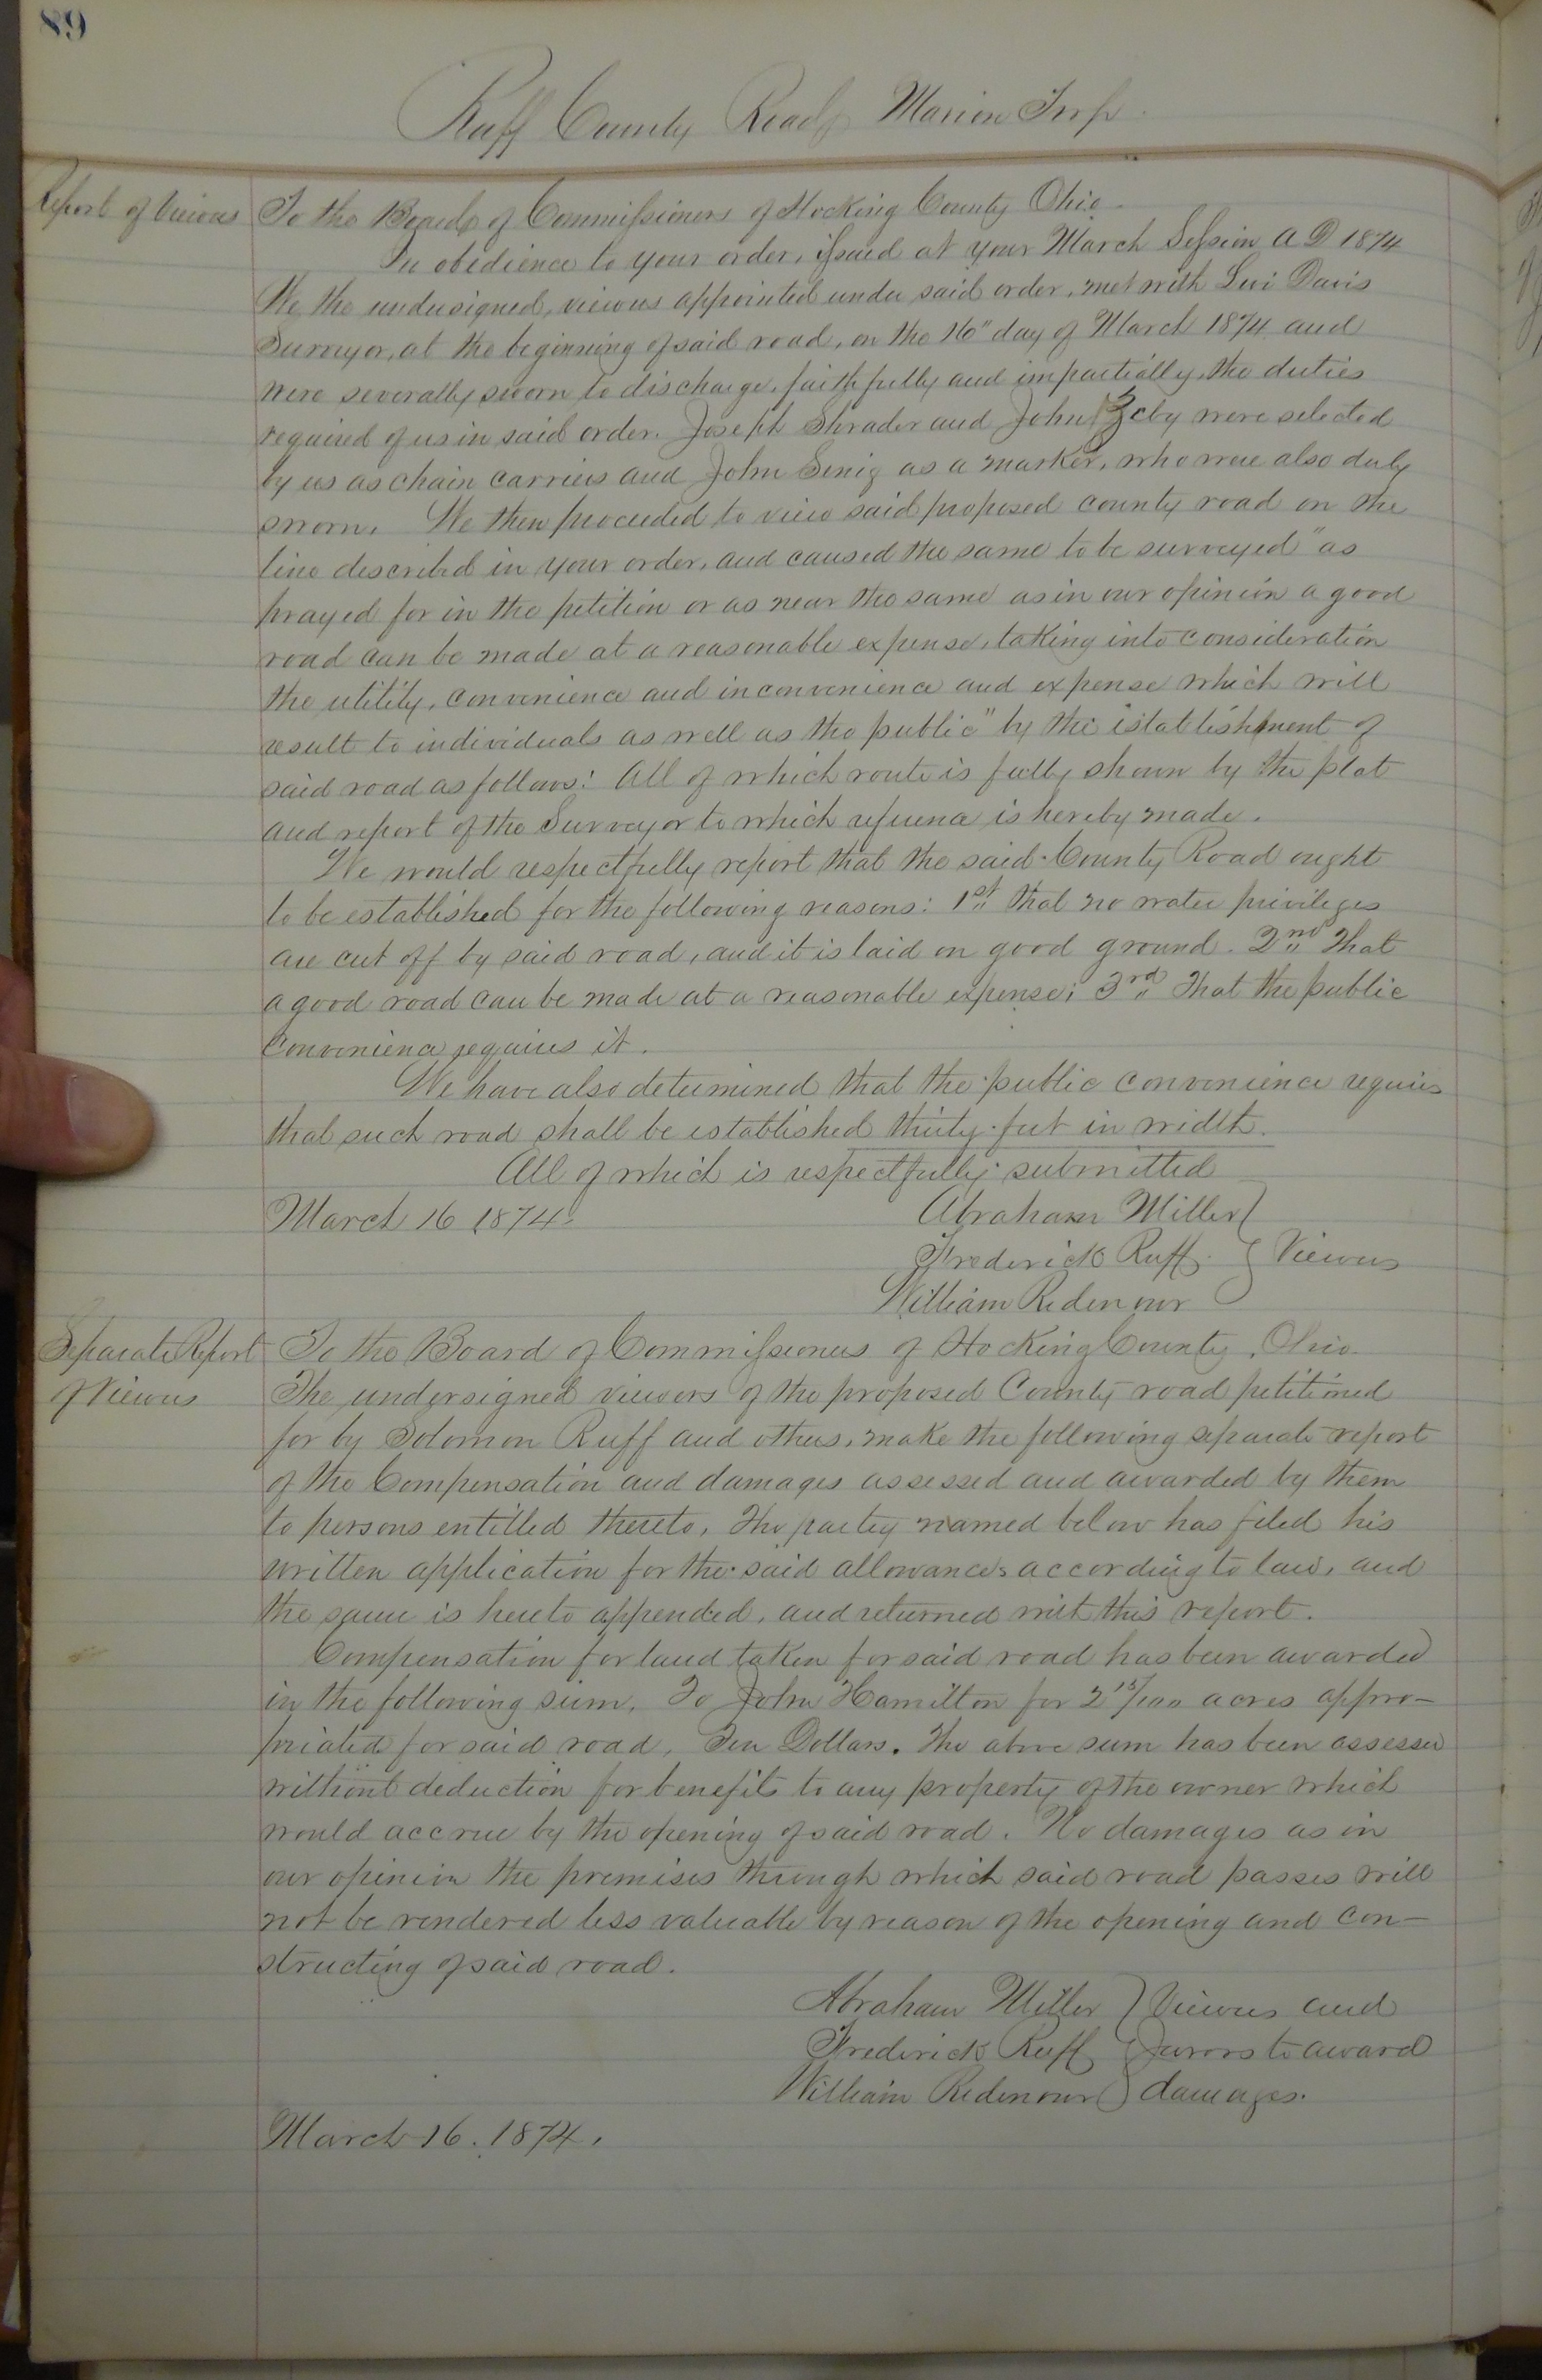 89
Ruff County Road Marion Twp.
Report of Viewers
To the Board of Commissioners of Hocking County Ohio.
In obedience to your order, issued at your March Session A D 1874
We the undersigned, viewers appointed under said order, met with Levi Davis
Surveyor, at the beginning of said road, on the 16" day of March 1874 and
were severally sworn to discharge, faithfully and impartially, the duties
required of us in said order. Joseph Shrader and John were selected
by us as chain carriers and John Senig as a marker, who were also duly
sworn. We then proceeded to view said proposed county road on the
line described in your order, and caused the same to be surveyed "as
prayed for in the petition or as near the same as in our opinion a good
road can be made at a reasonable expense, taking into consideration
the utility, convenience and inconvenience and expense which will
result to individuals as well as the public" by the establishment of
said road as follows: All of which route is fully shown by the plat
and report of the Surveyor to which reference is hereby made.
We would respectfully report that the said County Road ought
to be established for the following reasons: 1st that no water privileges
are cut off by said road, and it is laid on good ground. 2nd That
a good road can be made at a reasonable expense; 3rd That the public
convenience requires it.
We have also determined that the public convenience requires
that such road shall be established thirty feet in width.
All of which is respectfully submitted
March 16 1874.
Abraham Miller
Frederick Ruff } Viewers
William Ridenour
Separate Report
of Viewers
To the Board of Commissioners of Hocking County, Ohio.
The undersigned viewers of the proposed County road petitioned
for by Solomon Ruff and others, make the following separate report
of the Compensation and damages assessed and awarded by them
to persons entitled thereto, The party named below has filed his
written application for the said allowances according to law, and
the same is hereto appended, and returned with this report.
Compensation for land taken for said road has been awarded
in the following sum, To John Hamilton for 2 15/100 acres appro-
priated for said road, Ten Dollars. The above sum has been assessed
without deduction for benefits to any property of the owner which
would accrue by the opening of said road. No damages as in
our opinion the premises through which said road passes will
not be rendered less valuable by reason of the opening and con-
structing of said road.
Abraham Miller } Viewers and
Frederick Ruff } Jurors to award
William Ridenour } damages.
March 16. 1874.